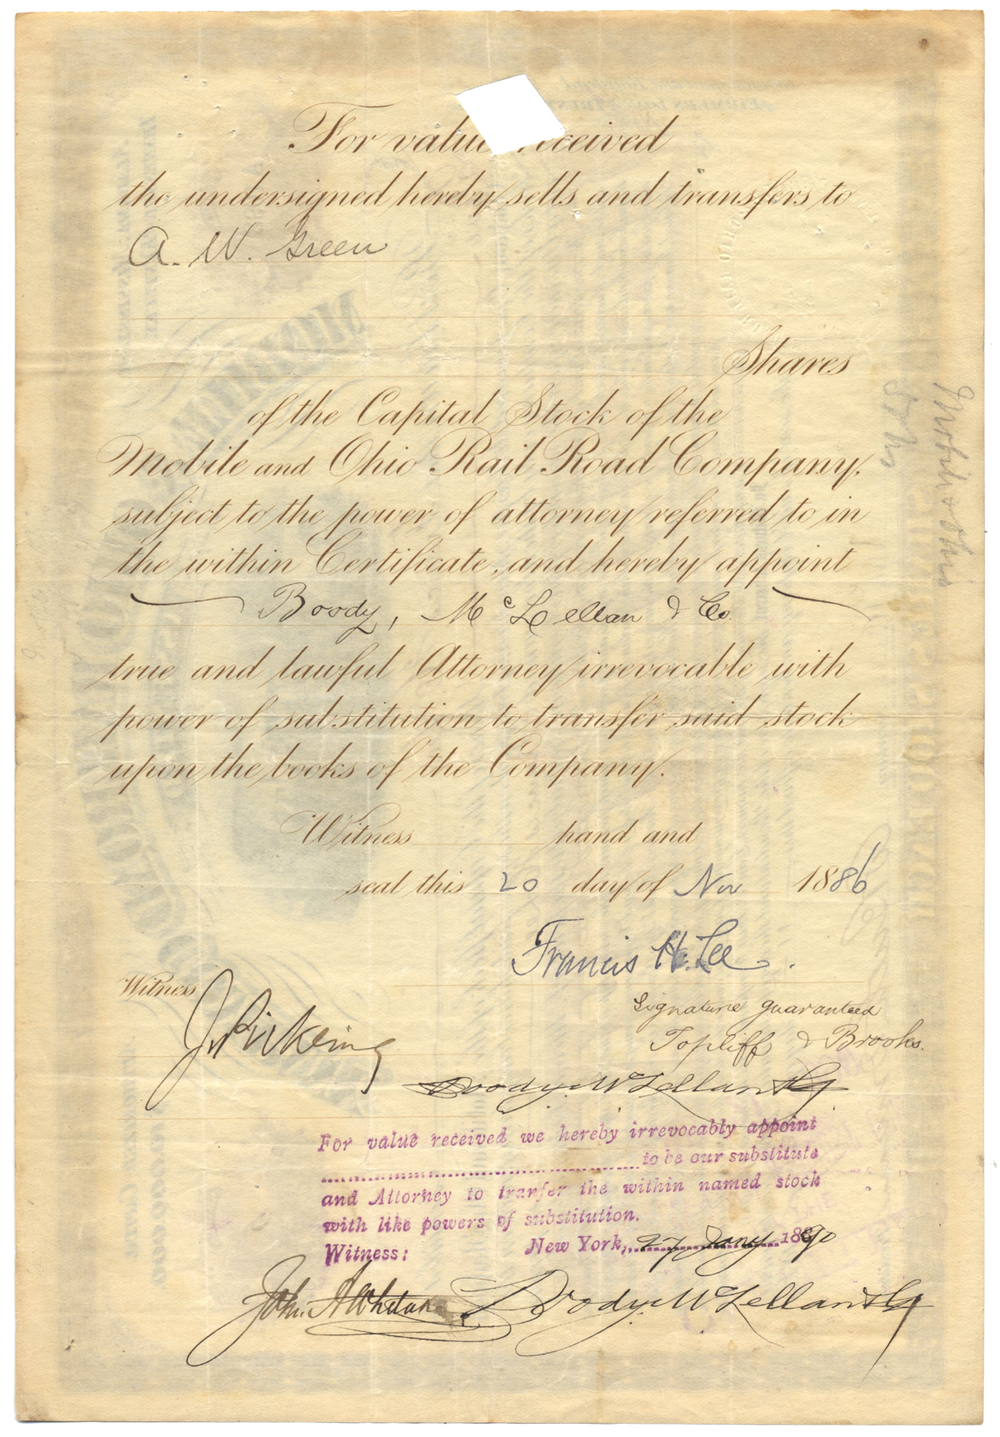 For value received
the undersigned hereby sells and transfers to
A. W. Green
Shares
of the Capital Stock of the
Mobile and Ohio Rail Road Company,
subject to the power of attorney referred to in
the within Certificate, and hereby appoint
Boody, McLellan & Co.
true and lawful Attorney irrevocable with
power of substitution to transfer said stock
upon the books of the Company.
Witness hand and
seal this 20 day of Nov 1886
Francis H. Lee.
Witness
Signature guaranteed
Topliff & Brooks.
Boody McLellan & Co
For value received we hereby irrevocably appoint
to be our substitute
and Attorney to tranfer the within named stock
with like powers of substitution.
Witness: New York, 27 Jany 1890
Boody McLellan & Co
Mobile & Ohio